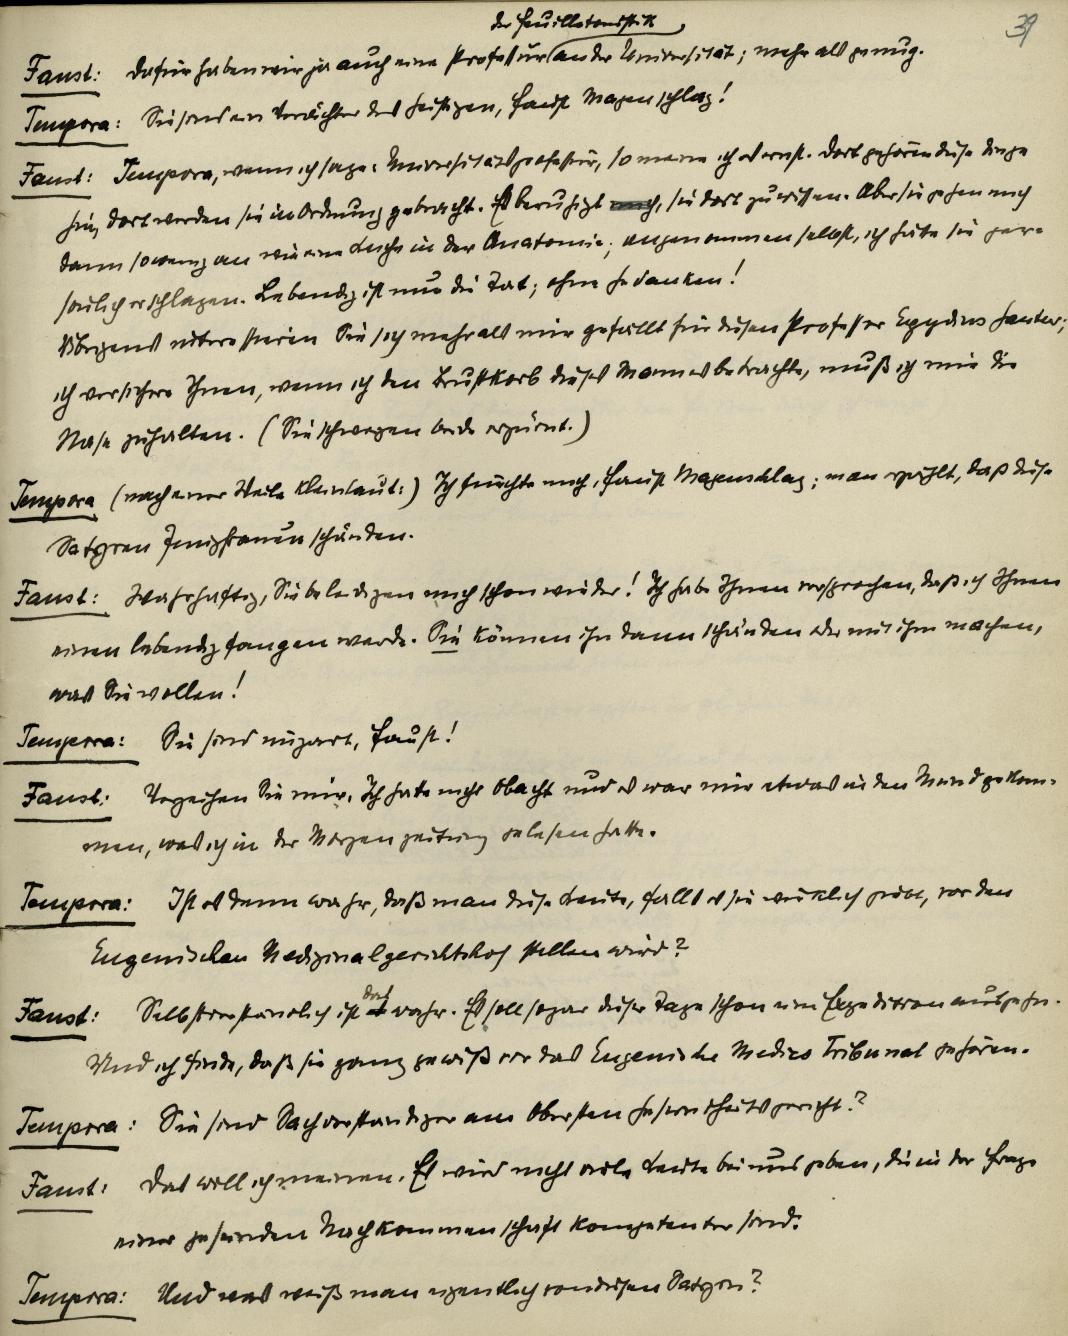 39
der Feuilletonistik
Faust: Dafür haben wir ja auch eine Professur an der Universität; mehr als genug.
Tempora: Sie sind ein Verächter des Geistigen, Faust Magenschlag!
Faust: Tempora, wenn ich sage: Universitätsprofessur, so meine ich es ernst. Dort gehören diese Dinge
hin, dort werden sie in Ordnung gebracht. Es beruhigt mich, sie dort zu wissen. Aber sie gehen mich
dann so wenig an wie eine Leiche in der Anatomie; angenommen selbst, ich hätte sie per-
sönlich erschlagen. Lebendig ist nur die Tat; ohne Gedanken!
Übrigens interessieren Sie sich mehr als mir gefällt für diesen Professor Egydius Sauter;
ich versichere Ihnen, wenn ich den Brustkorb dieses Mannes betrachte, muß ich mir die
Nase zuhalten. (Sie schweigen beide erzürnt.)
Tempora (nach einer Weile kleinlaut:) Ich fürchte mich, Faust Magenschlag; man erzählt, daß diese
Satyren Jungfrauen schänden.
Faust: Wahrhaftig, Sie beleidigen mich schon wieder! Ich habe Ihnen versprochen, daß ich Ihnen
einen lebendig fangen werde. Sie können ihn dann schänden oder mit ihm machen,
was Sie wollen!
Tempora: Sie sind unzart, Faust!
Faust: Verzeihen Sie mir. Ich hatte nicht Obacht und es war mir etwas in den Mund gekom-
men, was ich in der Morgenzeitung gelesen hatte.
Tempora: Ist es denn wahr, daß man diese Leute, falls es sie wirklich gibt, vor den
Eugenischen Medizinalgerichtshof stellen wird?
Faust: Selbstverständlich ist das wahr. Es soll sogar dieser Tage schon eine Expedition ausgehn.
Und ich finde, daß sie ganz gewiß vor das Eugenische Medico Tribunal gehören.
Tempora: Sie sind Sachverständiger am Obersten Gesundheitsgericht?
Faust: Das will ich meinen. Es wird nicht viele Leute bei uns geben, die in der Frage
einer gesunden Nachkommenschaft kompetenter sind.
Tempora: Und was weiß man eigentlich von diesen Satyrn?